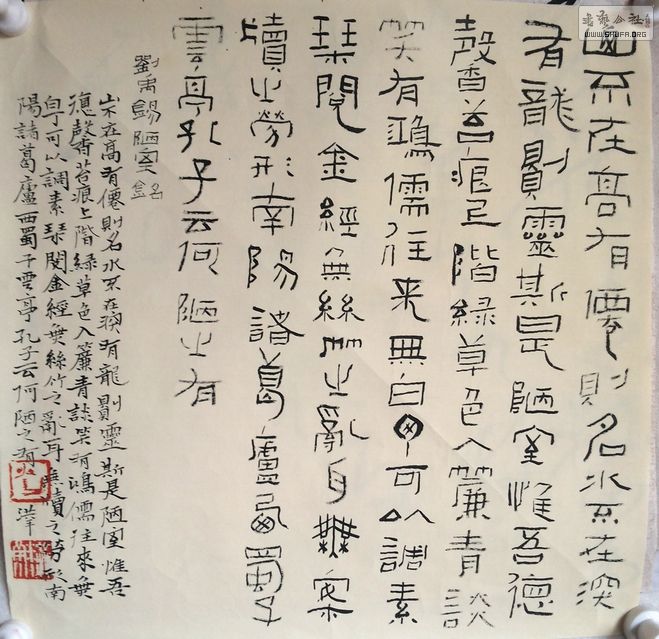 書藝公社
WWW.SHUFA.ORG
山不在高有僊則名水不在深
有龍則靈斯是陋室惟吾德
馨香苔痕上階緑草色入簾青談
笑有鴻儒往来無白丁可以調素
琹閱金經無絲竹之亂耳無案
牘之勞形南陽諸葛廬西蜀子
雲亭孔子云何陋之有
劉禹錫陋室銘
山不在高有僊則名水不在深有龍則靈斯是陋室惟吾
德馨香苔痕上階緑草色入簾青談笑有鴻儒往来無
白丁可以調素琹閱金經無絲竹之亂耳無牘之勞形南
陽諸葛廬西蜀子雲亭孔子云何陋之有